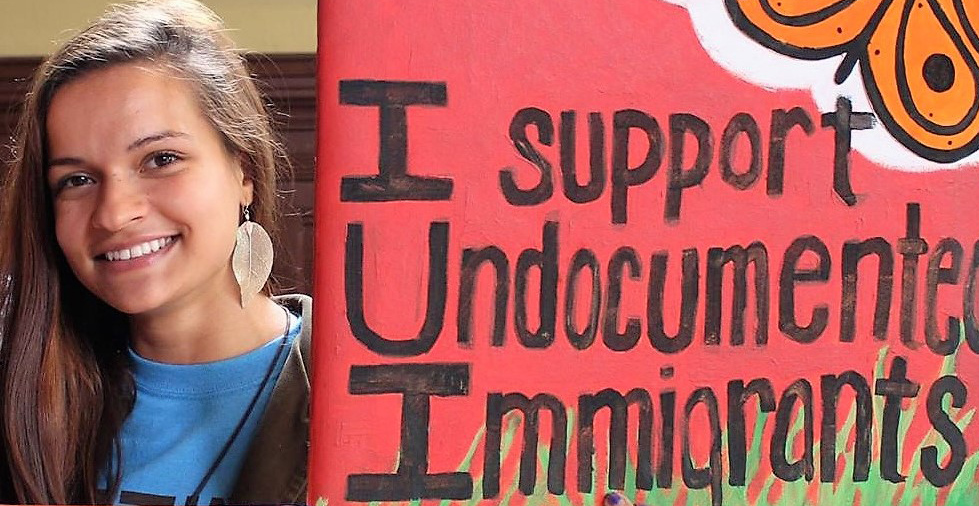 I support
Undocumented
Immigrants